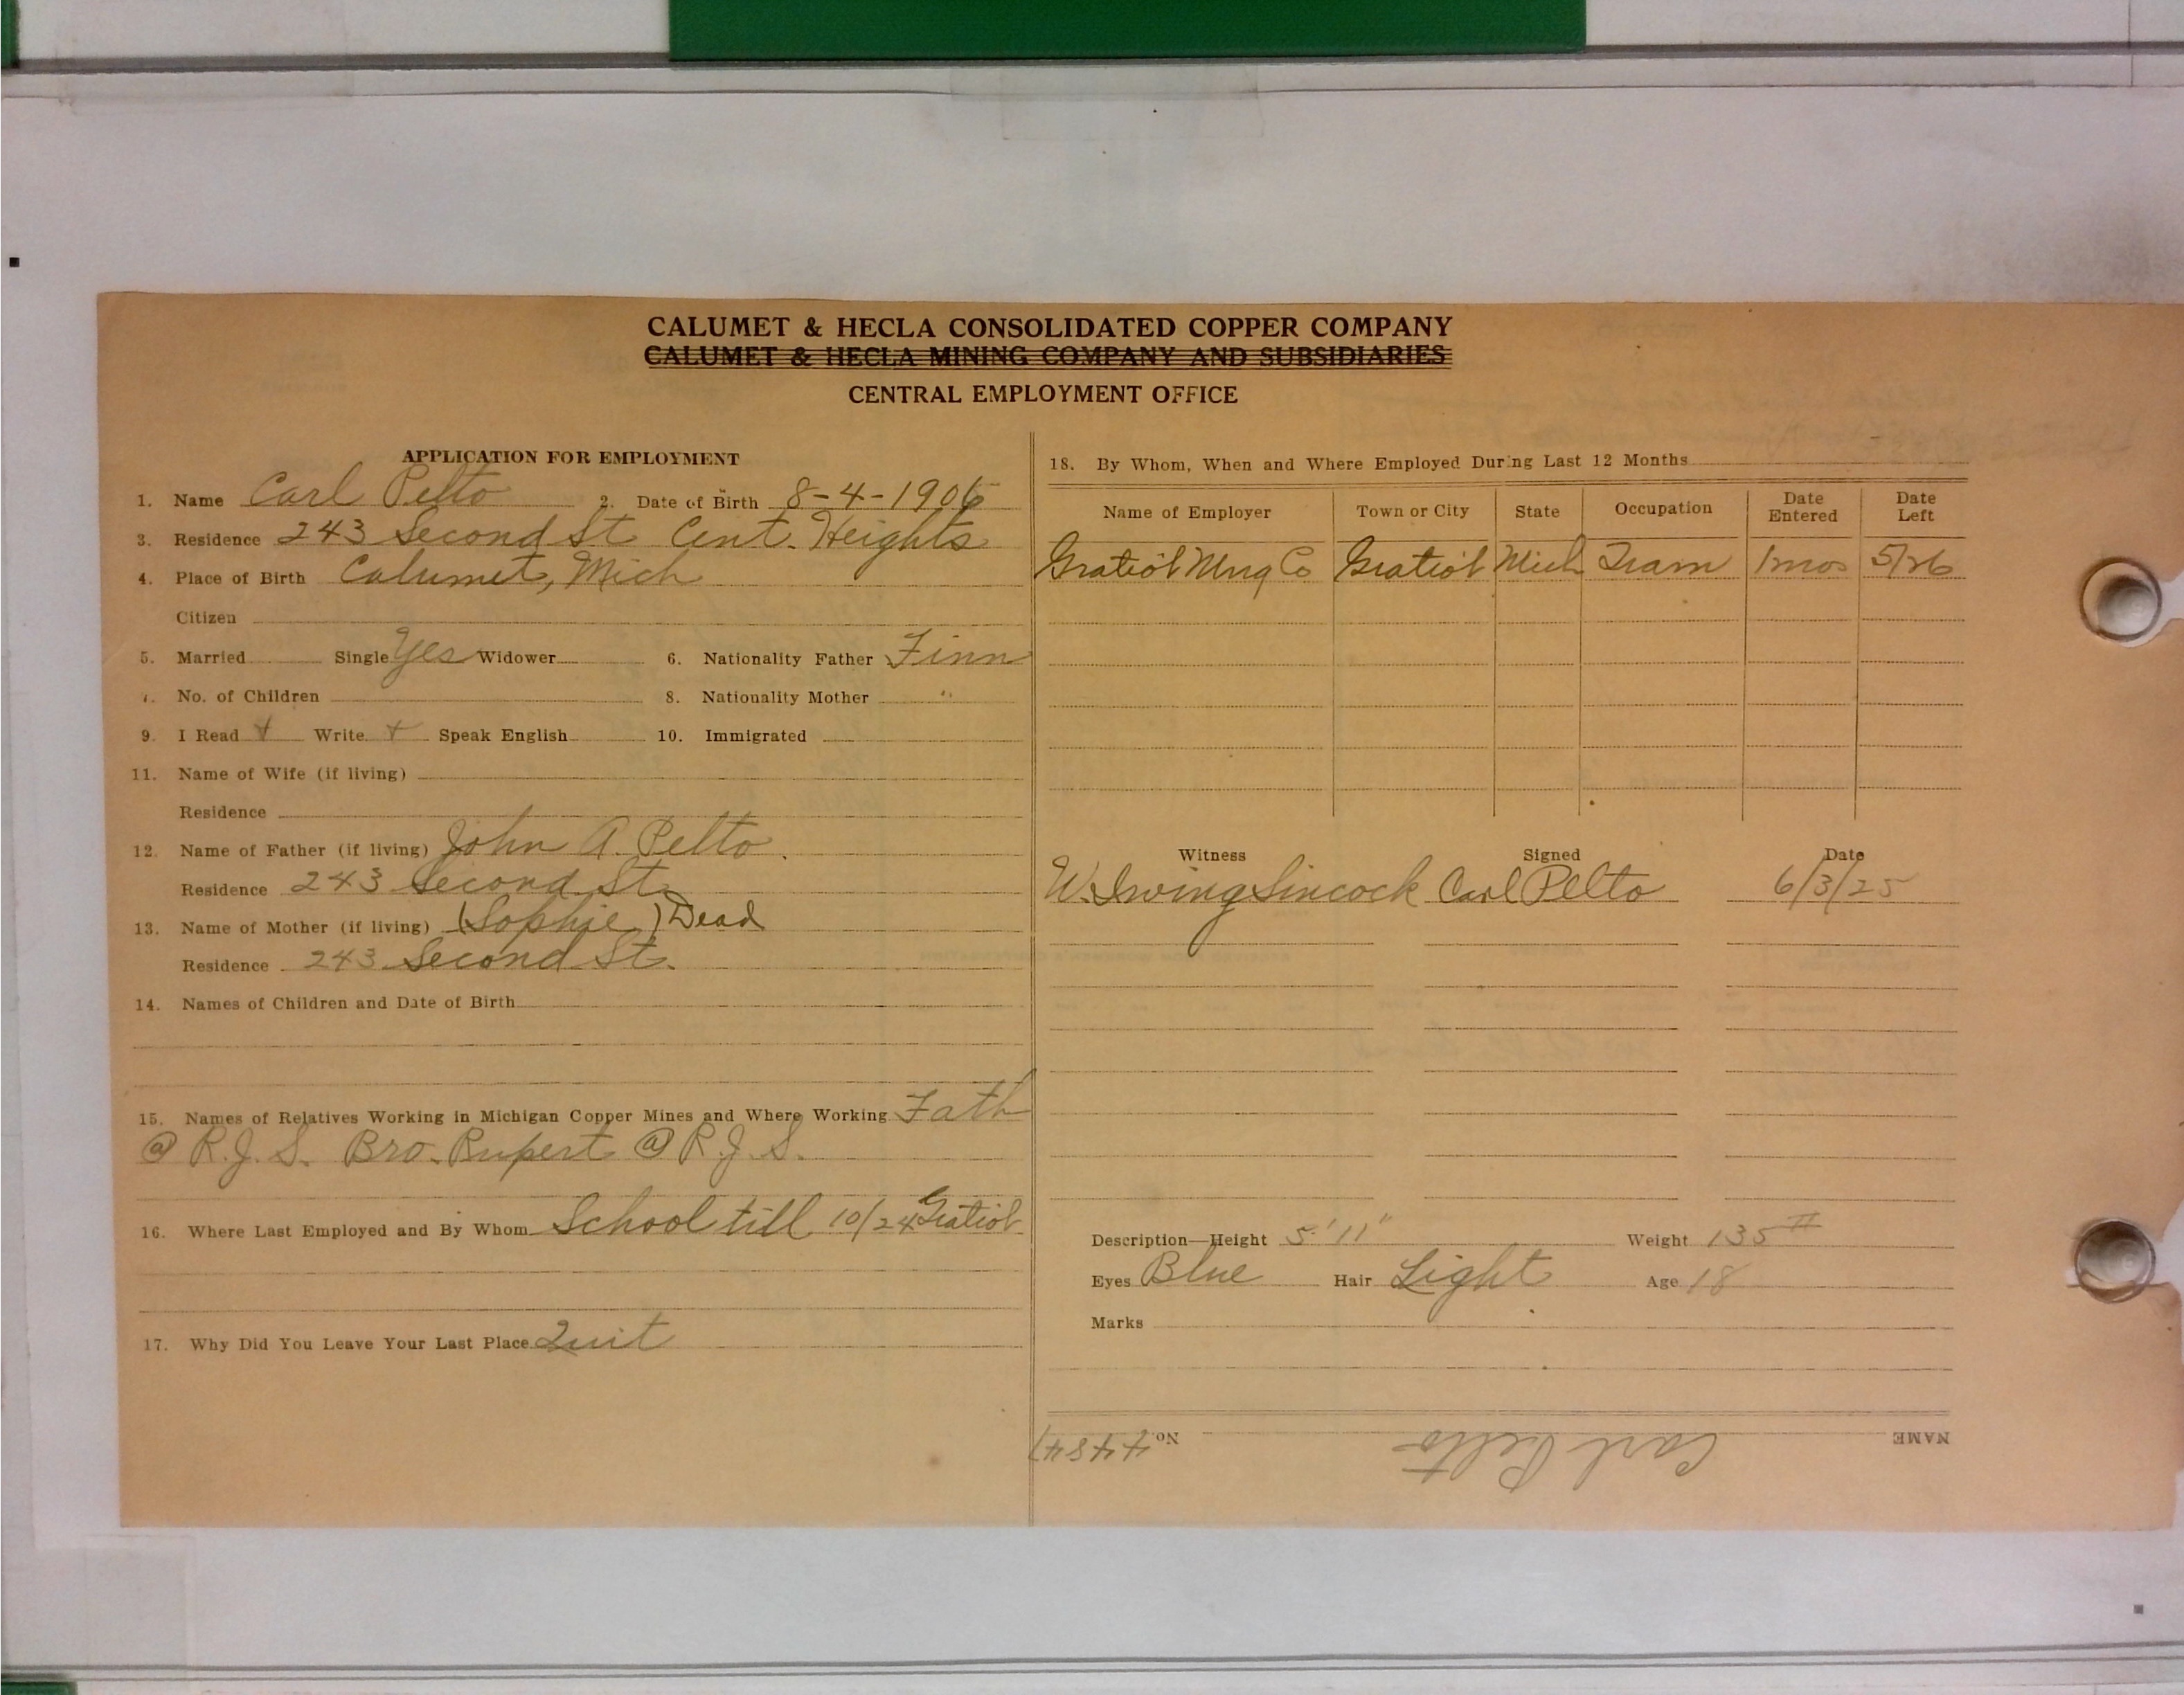 CALUMET & HECLA CONSOLIDATED COPPER COMPANY
CALUMET & HECLA MINING COMPANY AND SUBSIDIARIES
CENTRAL EMPLOYMENT OFFICE
APPLICATION FOR EMPLOYMENT
1. Name Carl Pelto 2. Date of Birth 8-4-1906
3. Residence 243 Second St Cent. Heights
4. Place of Birth Calumet, Mich
Citizen
5. Married Single Yes Widower 6. Nationality Father Finn
7. No. of Children 8. Nationality Mother "
9. I Read + Write + Speak English 10. Immigrated
11. Name of Wife (if living)
Residence
12. Name of Father (if living) John A. Pelto.
Residence 243 Second St.
13. Name of Mother (if living) (Sophie) Dead
Residence 243 Second St.
14. Names of Children and Date of Birth
15. Names of Relatives Working in Michigan Copper Mines and Where Working Fath
@ R.J.S. Bro. Rupert @ R.J.S.
16. Where Last Employed and By Whom School till 10/24 Gratiot
17. Why Did You Leave Your Last Place Quit
18. By Whom, When and Where Employed During Last 12 Months
Name of Employer Town or City State Occupation Date Entered Date Left
Gratiot Mng Co Gratiot Mich Tram 1 mos 5/26
Witness Signed Date
W. Irving Sincock Carl Pelto 6/3/25
Description—Height 5'11" Weight 135 #
Eyes Blue Hair Light Age 18
Marks
NAME Carl Pelto No.